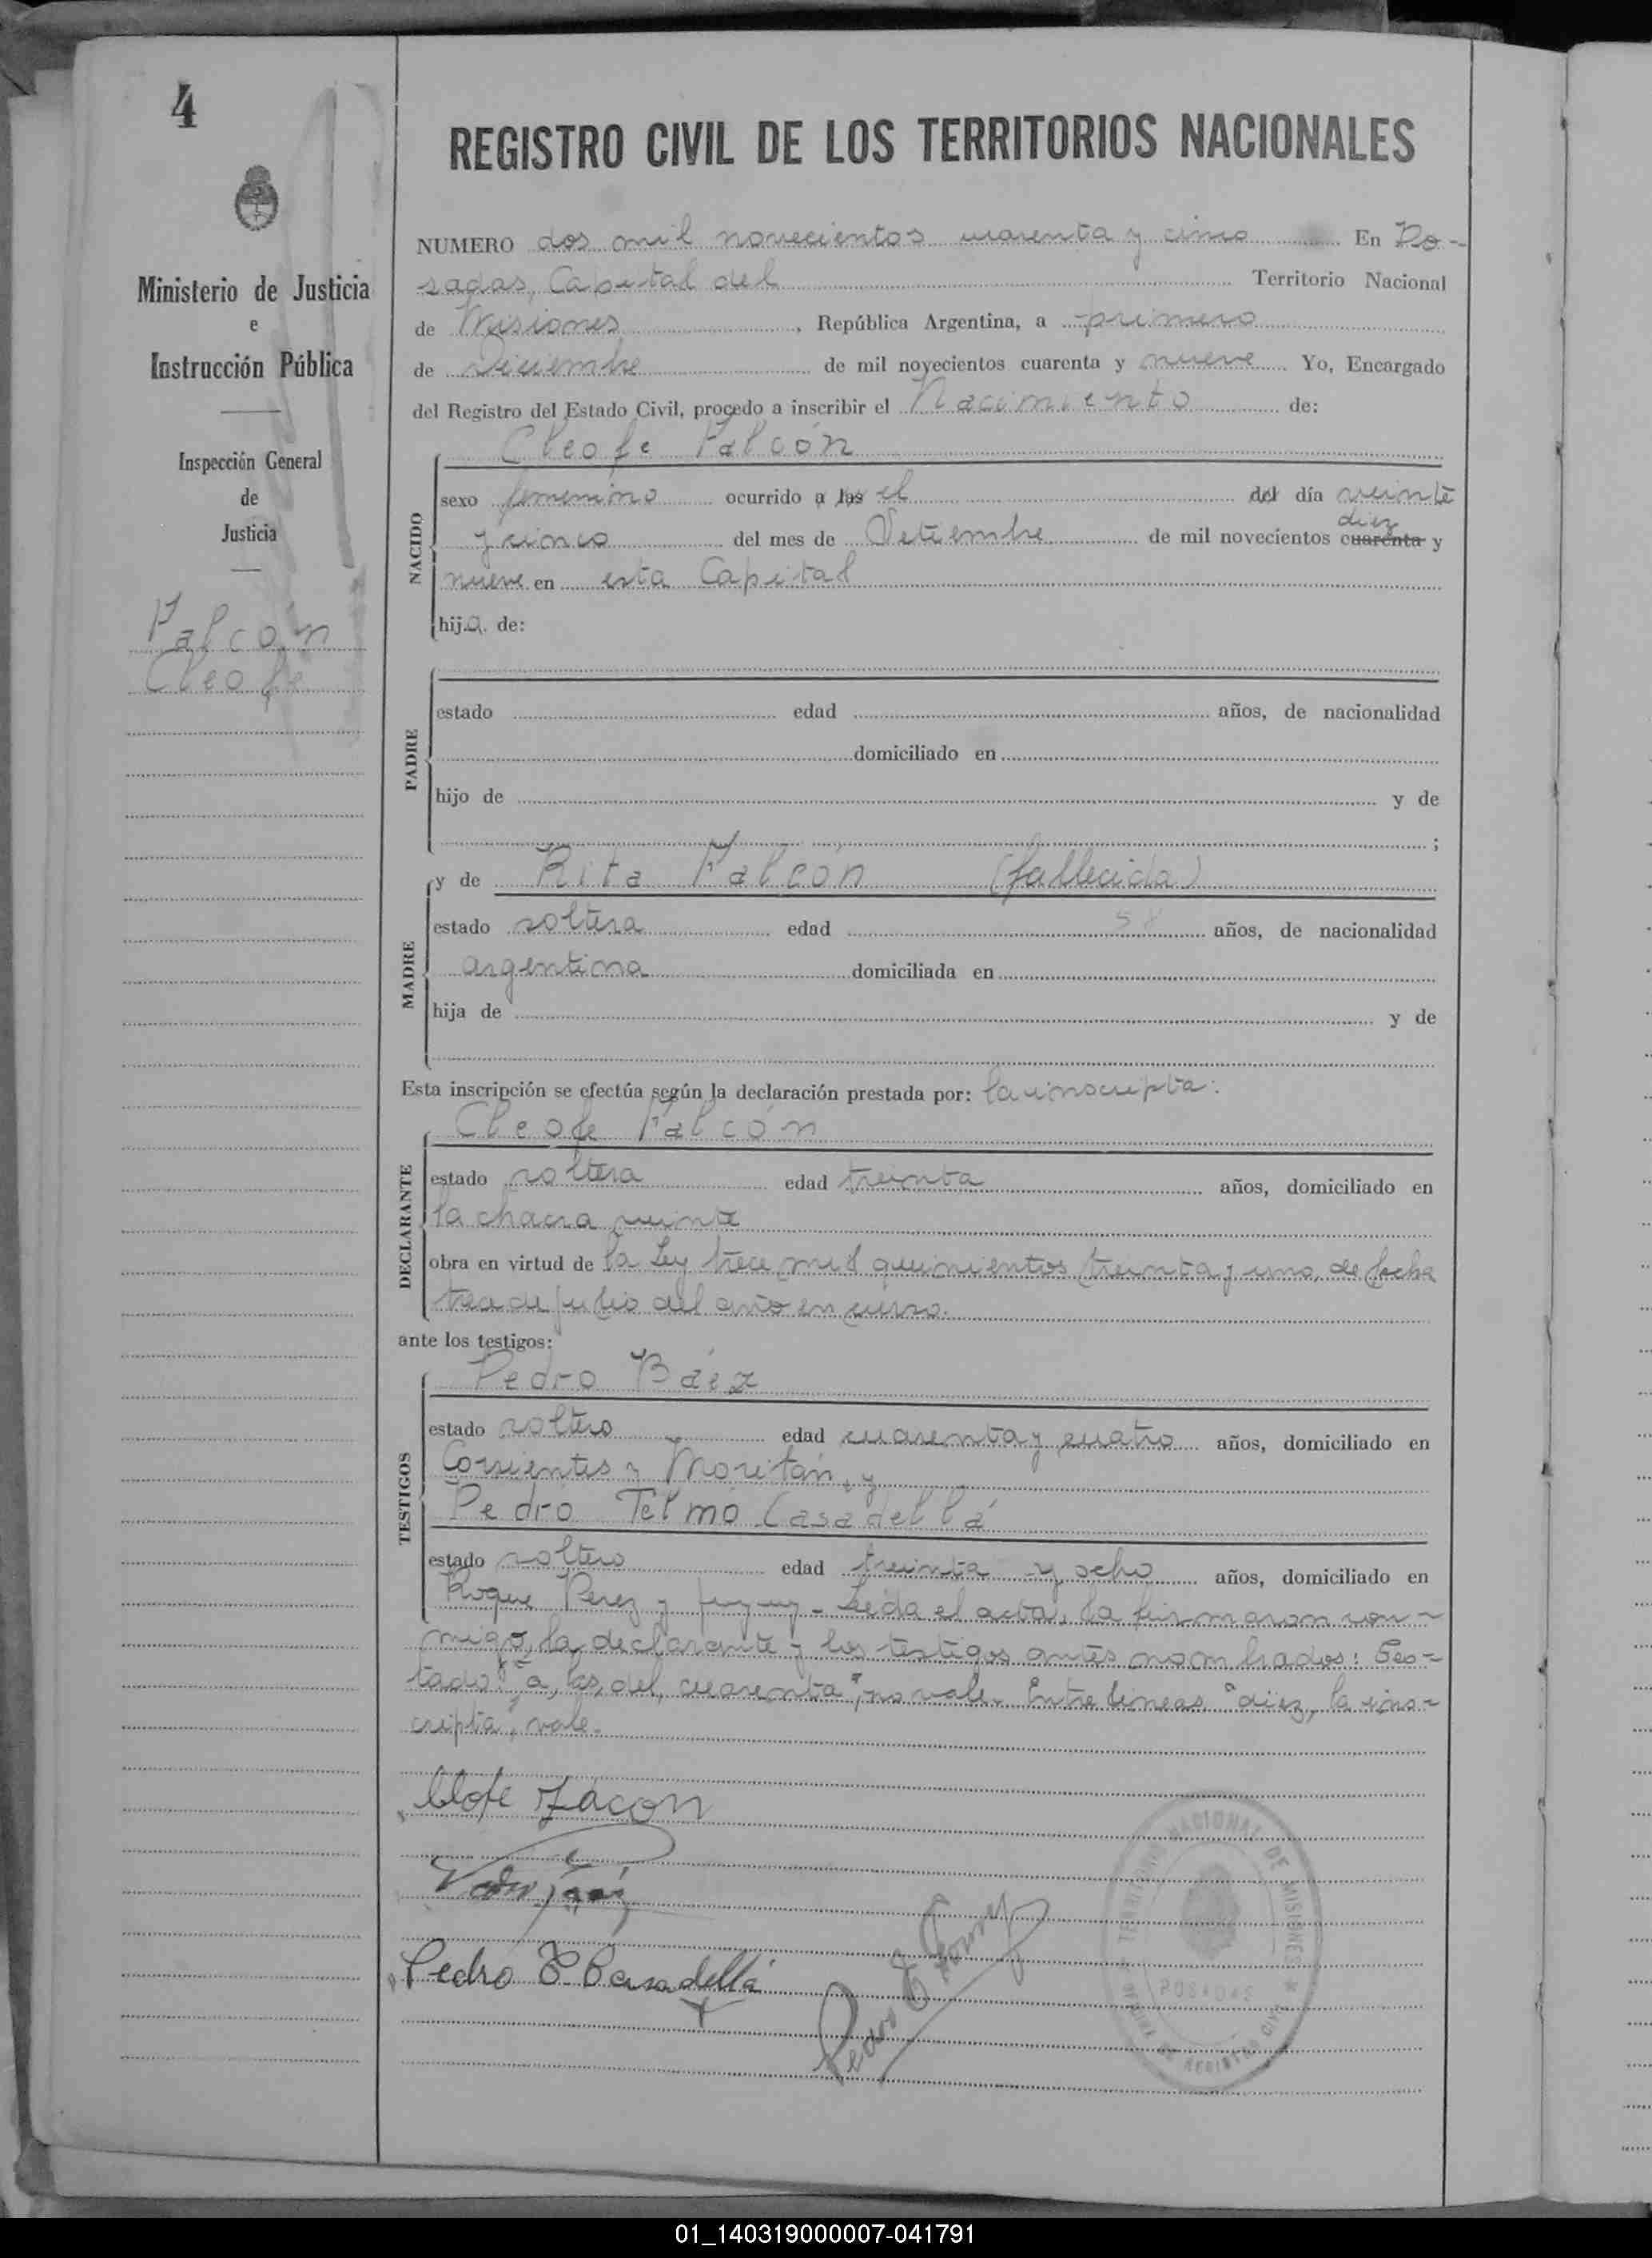 4
REGISTRO CIVIL DE LOS TERRITORIOS NACIONALES
Ministerio de Justicia
e
Instrucción Pública
Inspección General
de
Justicia
Falcón
Cleofe
NUMERO dos mil novecientos cuarenta y cinco En Po-
sadas, Capital del Territorio Nacional
de Misiones, República Argentina, a primero
de Diciembre de mil novecientos cuarenta y nueve Yo, Encargado
del Registro del Estado Civil, procedo a inscribir el Nacimiento de:
Cleofe Falcón
NACIDO
sexo femenino ocurrido a las el del día veinte
y cinco del mes de Setiembre de mil novecientos cuarenta diez y
nueve en esta Capital
hija de:
PADRE
estado edad años, de nacionalidad
domiciliado en
hijo de y de
;
MADRE
y de Rita Falcón (fallecida)
estado soltera edad años, de nacionalidad
argentina domiciliada en
hija de y de
Esta inscripción se efectúa según la declaración prestada por: la inscripta:
Cleofe Falcón
DECLARANTE
estado soltera edad treinta años, domiciliado en
la chacra veinte
obra en virtud de la Ley trece mil quinientos treinta y uno, de fecha
tres de julio del año en curso.
ante los testigos:
Pedro Báez
TESTIGOS
estado soltero edad cuarenta y cuatro años, domiciliado en
Corrientes y Moritán, y
Pedro Telmo Casadellá
estado soltero edad treinta y ocho años, domiciliado en
Roque Perez y Jujuy - Leída el acta, la firmaron con-
migo, la declarante y los testigos antes nombrados: Tes-
tado: "a, las, del, cuarenta", no vale. Entre lineas "diez, la ins-
cripta", vale.
Clofe Facon
Pedro T Casadellá
TERRITORIO NACIONAL DE MISIONES
POSADAS
01_140319000007-041791